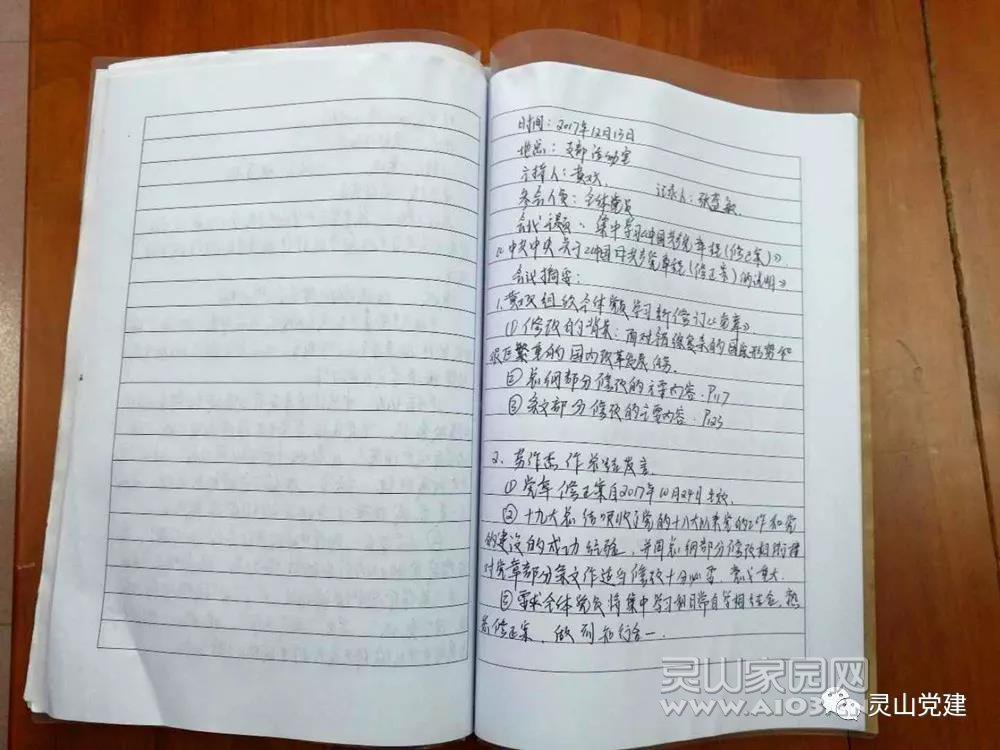 时间：2017年12月13日
地点：支部活动室
主持人：黄欢. 记录人：张莲敏.
参会人员：全体党员
会议主题：集中学习《中国共产党章程(修正案)》.
《中共中央关于《中国共产党章程(修正案)的说明》
会议摘要：
1.黄欢组织全体党员学习新修订《党章》.
①修改的背景：面对错综复杂的国际形势和
艰巨繁重的国内改革发展任务.
②总纲部分修改的主要内容. P117
③条文部分修改的主要内容. P123
2、劳作杰作总结发言.
①党章修正案自2017年10月24日生效.
②十九大总结吸收了党的十八大以来党的工作和党
的建设的成功经验，并同总纲部分修改相衔接
对党章部分条文作适当修改十分必要，意义重大.
③要求全体党员将集中学习和日常自学相结合，熟
悉修正案，做到知行合一.
灵山家园网
www.AI03.
灵山党建